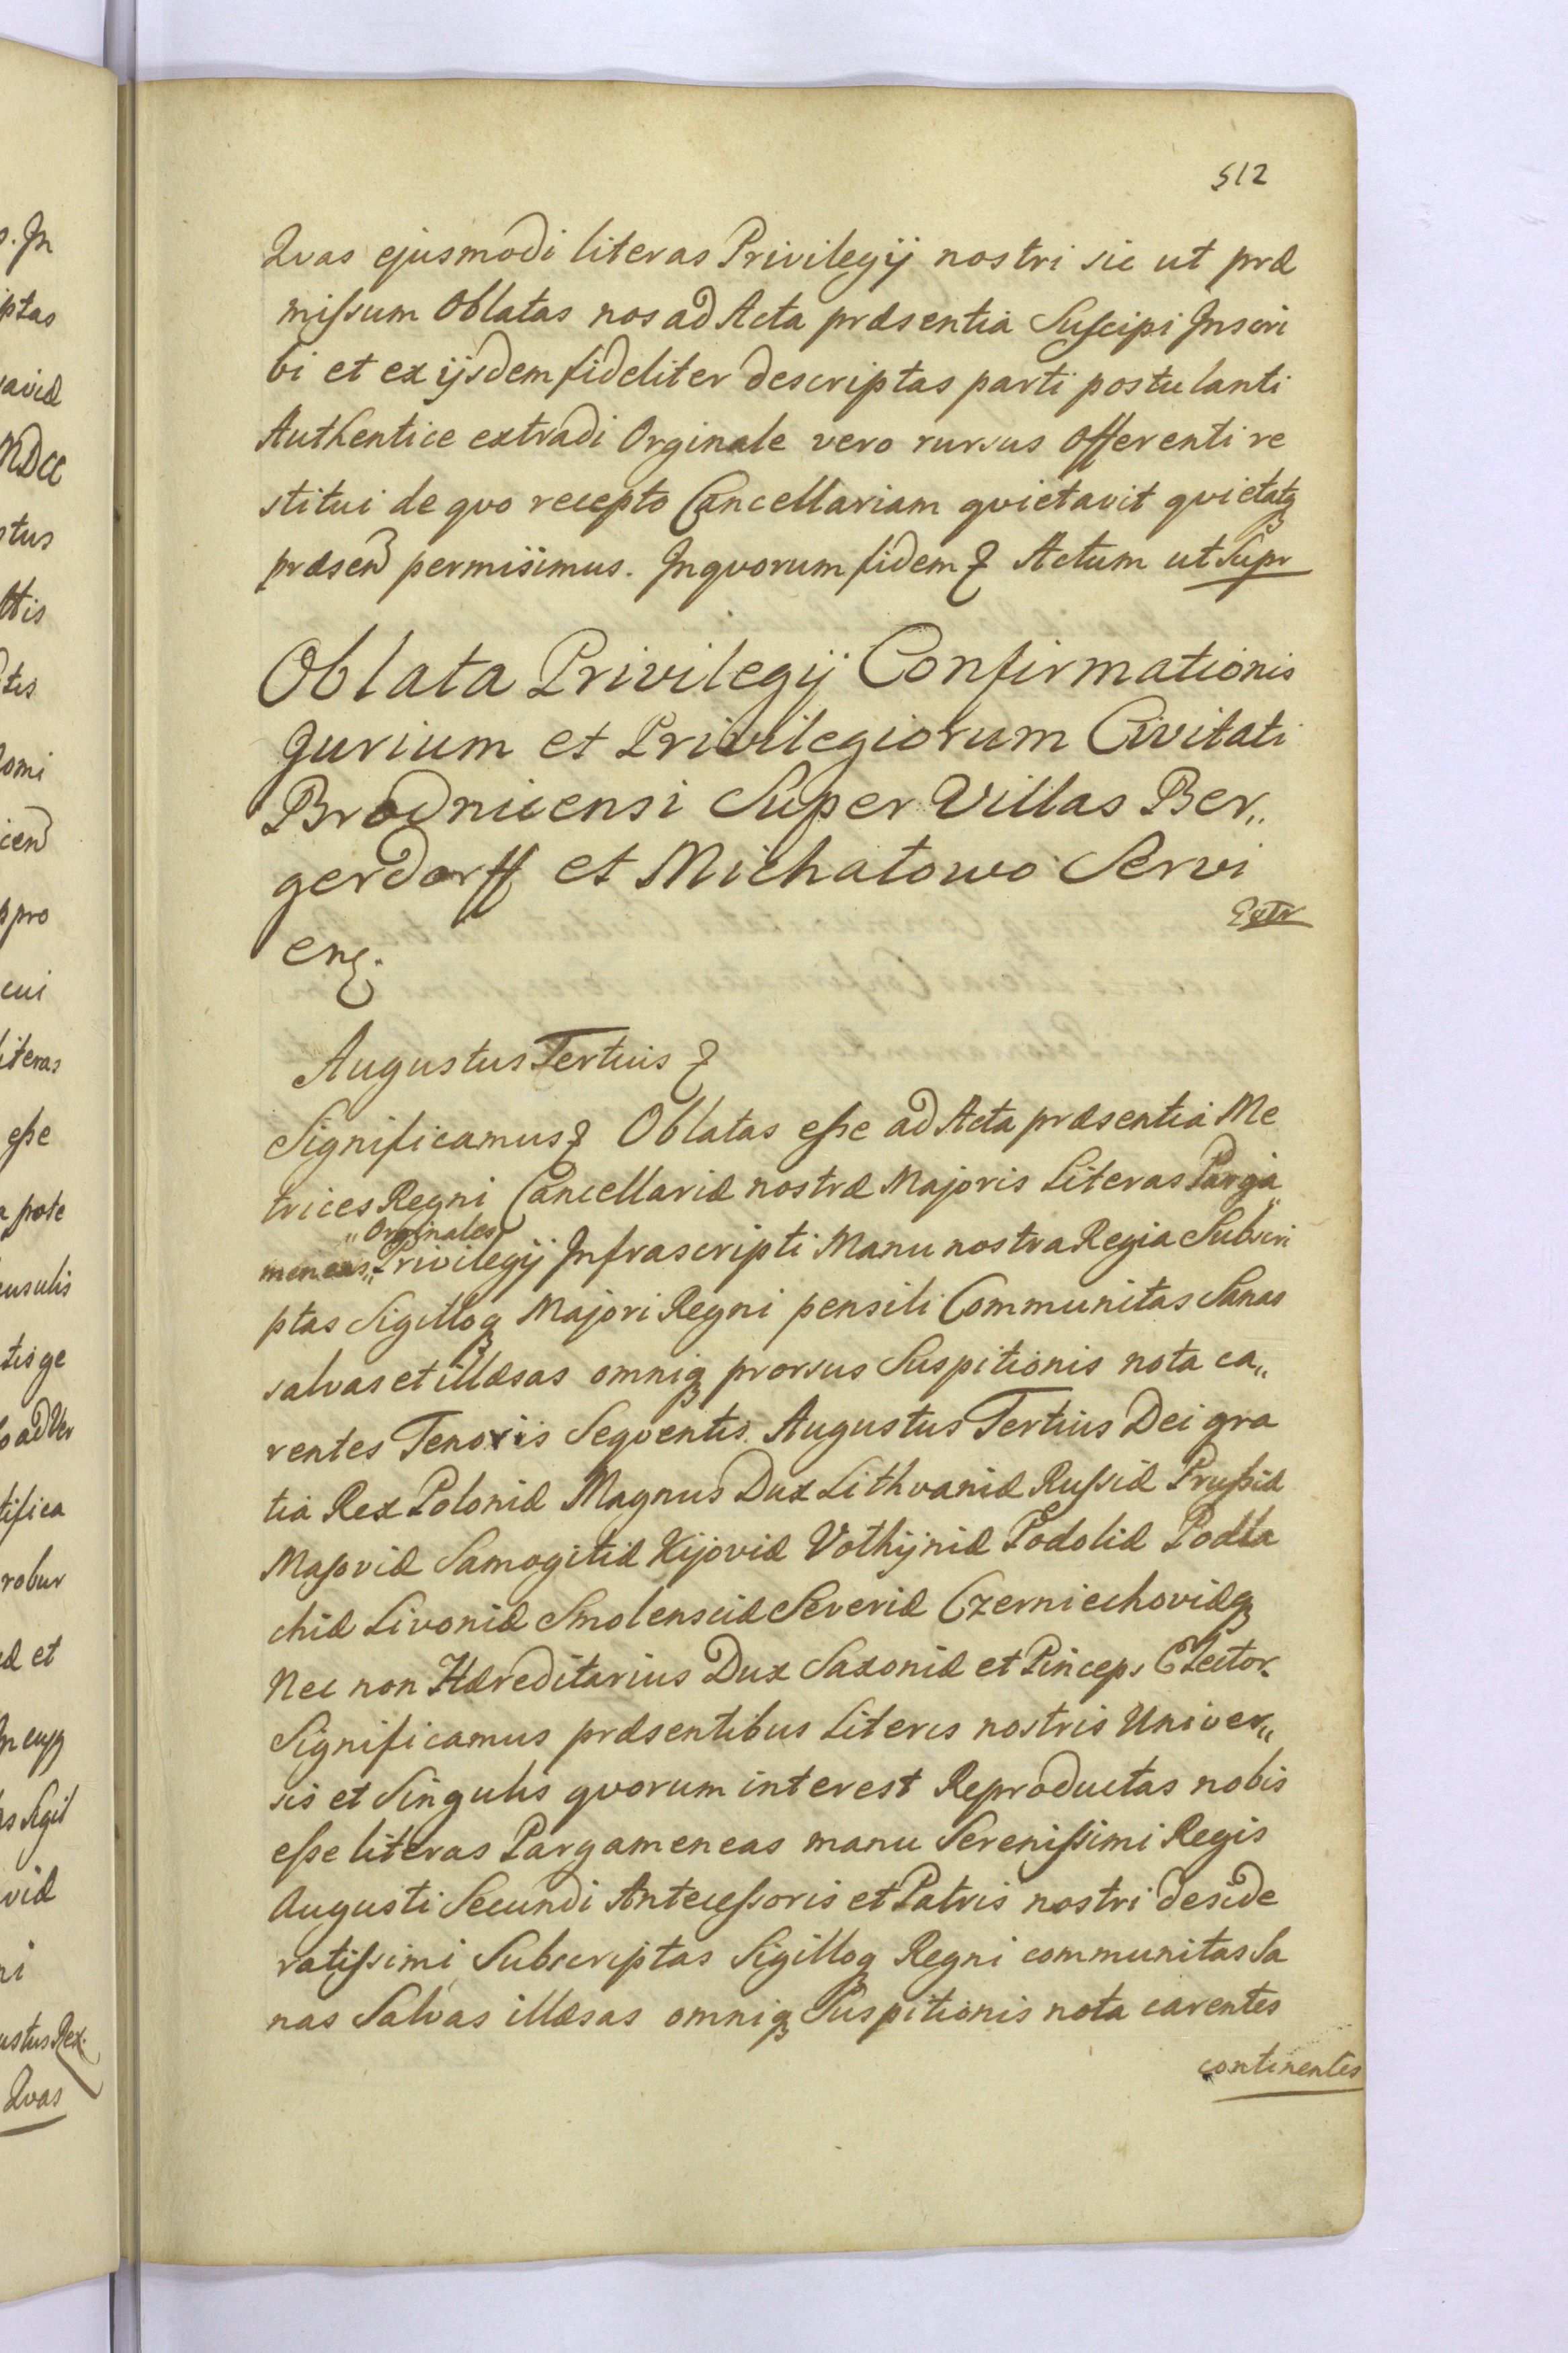 512
Qvas ejusmodi literas Privilegij nostri sic ut præ
missum Oblatas nos ad Acta præsentia Suscipi Inscri
bi et ex ijsdem fideliter descriptas parti postulanti
Authentice extradi Orginale vero rursus Offerenti re
stitui de qvo recepto Cancellariam qvietavit qvietatq
præsen permisimus. Inqvorum fidem & Actum ut Supr
Oblata Privilegij Confirmationis
Jurium et Privilegiorum Civitati
Brodnicensi Super Villas Ber„
gerdorff et Michałowo Servi
Extr
enę.
Augustus Tertius &
Significamus & Oblatas esse ad Acta præsentia Me
trices Regni Cancellariæ nostræ Majoris Literas Parga„
„Orginales
meneas„ Privilegij Infrascripti Manu nostra Regia Subscri
ptas Sigilloq Majori Regni pensili Communitas Sanas
salvas et illæsas omniq prorsus Suspitionis nota ca„
rentes Tenoris Seqventis. Augustus Tertius Dei gra
tia Rex Poloniæ Magnus Dux Lithvaniæ Russiæ Prussiæ
Masoviæ Samogitiæ Kijoviæ Vołhijniæ Podoliæ Podla
chiæ Livoniæ Smolensciæ Severiæ Czerniechoviæq
Nec non Hæreditarius Dux Saxoniæ et Pinceps Elector.
Significamus præsentibus Literis nostris Univer„
sis et Singulis qvorum interest Reproductas nobis
esse literas Pargameneas manu Serenissimi Regis
Augusti Secundi Antecessoris et Patris nostri deside
ratissimi Subscriptas Sigilloq Regni communitas Sa
nas Salvas illæsas omniq Suspitionis nota carentes
continentes
s. In
iptas
aviæ
MDCC
stus
ttis
domi
ppro
cui
literas
esse
pote
ensulis
tis ge
o ad Ver
tifica
robur
æ et
as Sigil
viæ
ni
ustus Rex.
Qvas